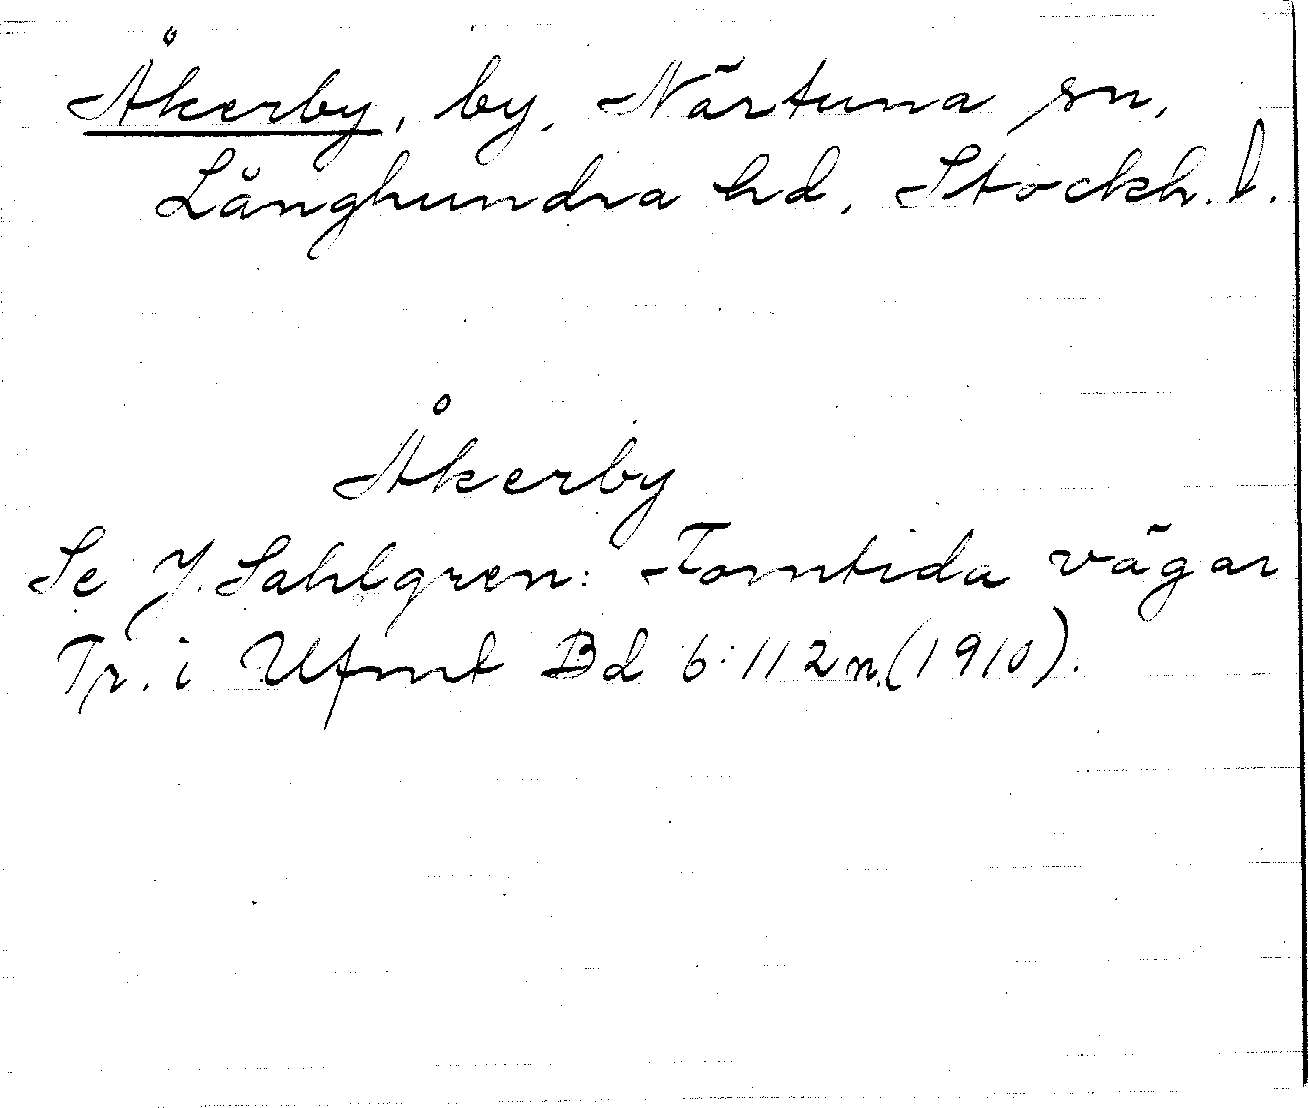 Åkerby, by, Närtuna sn,
Långhundra hd, Stockh. l.
Åkerby
Se J. Sahlgren: Forntida vägar
Tr. i Ufmt Bd 6:112 n. (1910).